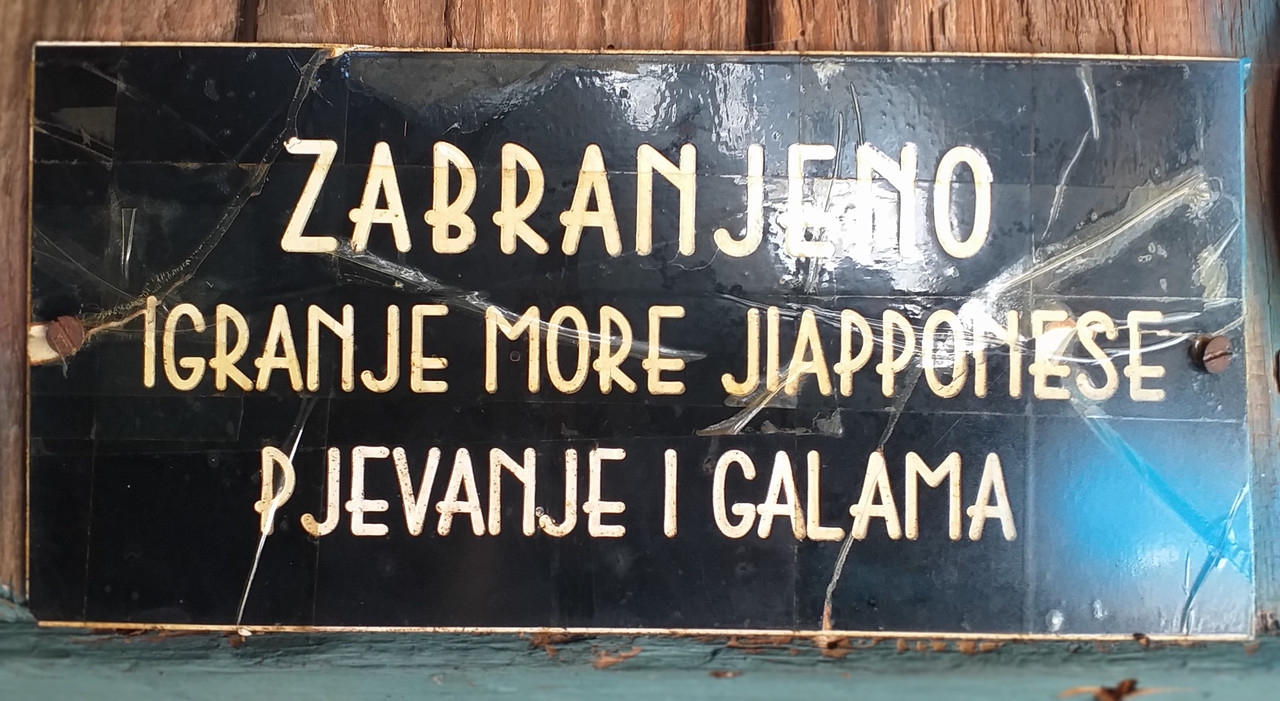 ZABRANJENO
IGRANJE MORE JIAPPONESE
PJEVANJE I GALAMA